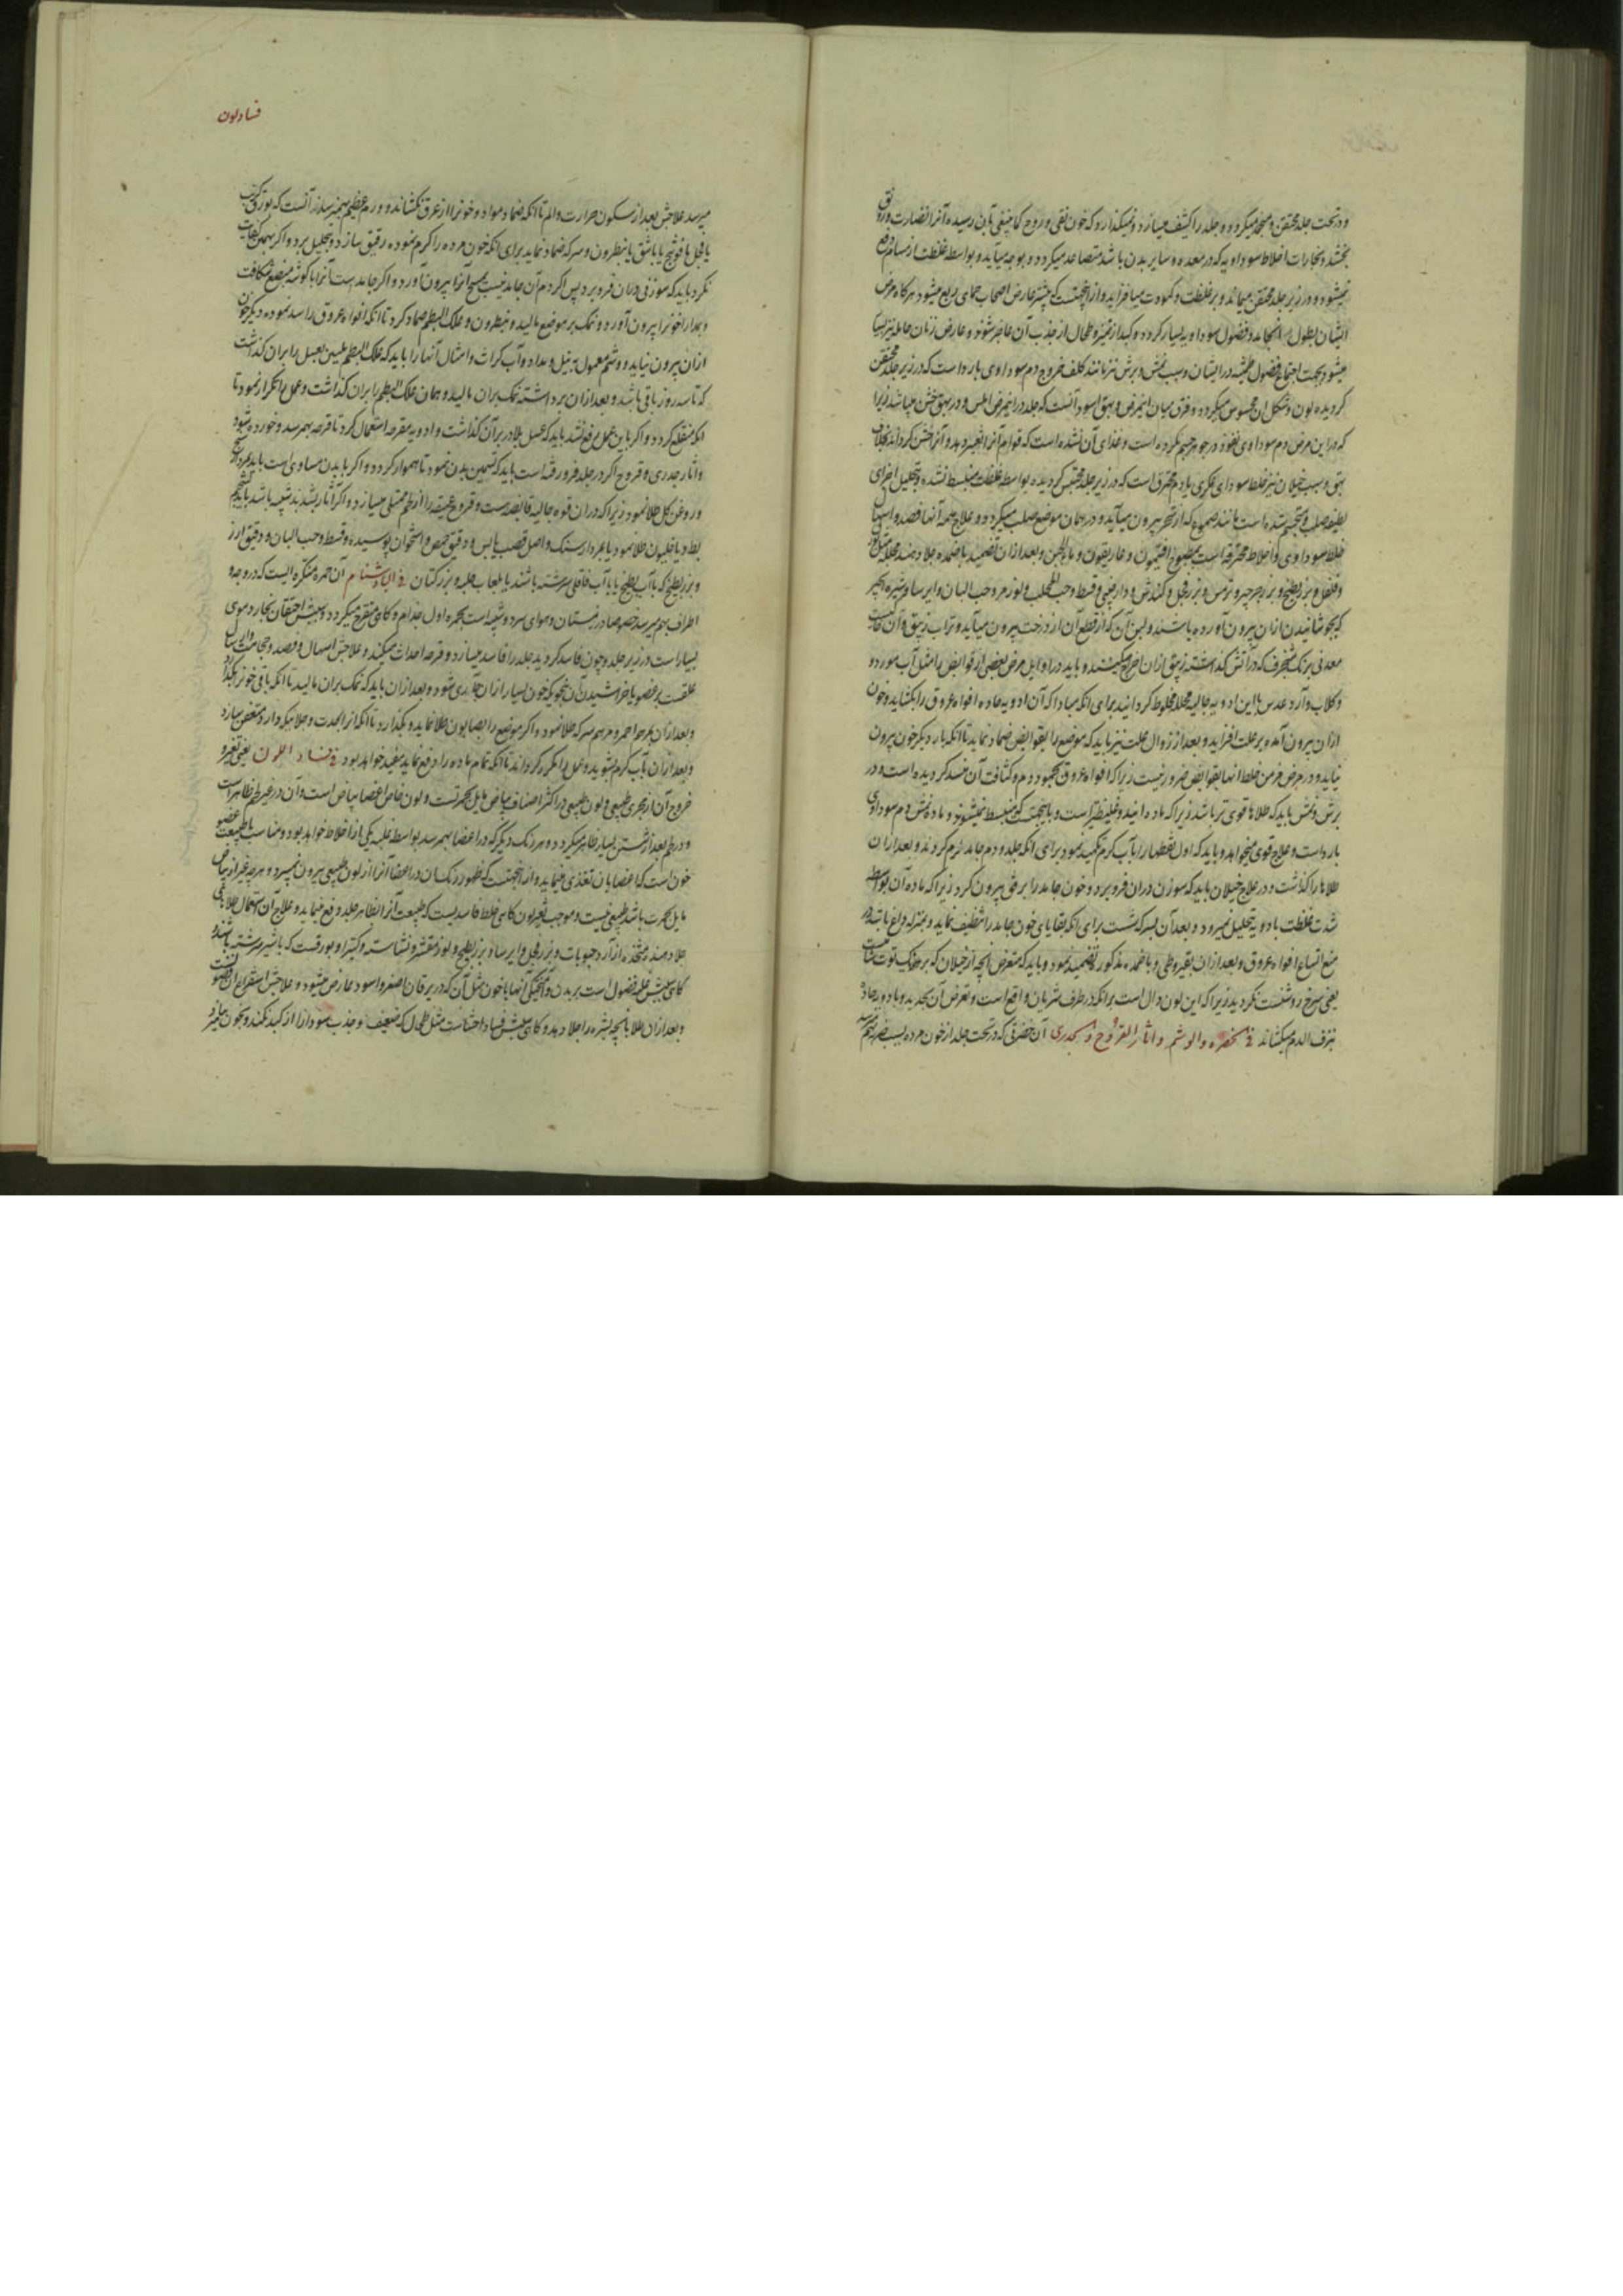 و در تحت جلد محتقن و منجمد میکردد و جلد را کثیف میسازد و نمیکذارد که خون نقی و روح کما ینبغی بآن رسیده آنرا نضارت و رونق
بخشد و بخارات اخلاط سوداویه که در معده و سایر بدن باشد متصاعد میکردد و بوجه میآید و بواسطه غلظت از مسام دفع
نمیشود و در زیر جلد محتقن میماند و بر غلظت و کمودت میافزاید و از اینجهتست که بیشتر عارض اصحاب حمای ربع میشود هرکاه مرض
ایشان بطول انجامد و فضول سوداویه بسیار کردد و کبد از تمیز و طحال از جذب آن عاجز شوند و عارض زنان حامله نیز
میشود بجهت اجتماع فضول طمثیه در ایشان و سبب نمش و برش نیز مانند کلف خروج دم سوداوی بارد است که در زیر جلد محتقن
کردیده لون و شکل ان محسوس میکردد و فرق میان اینمرض و بهق اسود آنست که جلد در اینمرض املس و در بهق خشن میباشد زیرا
که در این مرض دم سوداوی نفوذ در جوهر جسم نکرده است و غذای آن نشده است که قوام آنرا تغییر دهد و آنرا خشن کرداند بخلاف
بهق و سبب خیلان نیز خلط سودای عکری یا دم محترق است که در زیر جلد محتبس کردیده بواسطه غلظت منبسط نشده و بتحلیل اجزای
لطیفه صلب و متحجر شده است مانند صموغ که از شجر بیرون میآید و در همان موضع صلب میکردد و علاج همه آنها فصد و اسهال
خلط سوداوی و اخلاط محترقه است بمطبوخ افتیمون و غاریقون و ماءالجبن و بعد ازان تضمید باضمده جلا دهنده محلله مثل
و فلفل و بزر بطیخ و بزر جرجیر و ترمس و بزر فجل و کندش و دارچینی و قسط و حب المحلب و لوز مر و حب البان و ایرسا و شیره انجیر
که بجوشانیدن ازان بیرون آورده باشند و لبن آن که از قطع آن از درخت بیرون میآید و تراب زیبق و آن خاکیست
معدنی برنک شنجرف که در آتش کداشته زیبق ازان اخراج میکنند و باید در اوایل مرض بعضی از قوابض را مثل آب مورد و
و کلاب و آرد عدس با این ادویه جالیه محلله مخلوط کردانید برای انکه مبادا که آن ادویه حاده افواه عروق را بکشاید و خون
ازان بیرون آمده بر علت افزاید و بعد از زوال علت نیز باید که موضع را بقوابض ضماد نماید تا انکه بار دیکر خون بیرون
نیاید و در مرض مزمن خلط انها بقوابض ضرور نیست زیرا که افواه عروق بجمود دم و کثافت آن منسد کردیده است و در
برش و نمش باید که طلاها قوی تر باشد زیرا که ماده اینها غلیظتر است و باینجهت که منبسط نمیشوند و ماده نمش دم سوداوی
بارد است و علاج قوی میخواهد و باید که اول عضو را بآب کرم تکمید نمود برای انکه جلد و دم جامد نرم کردند و بعد ازان
طلاها را کذاشت و در علاج خیلان باید که سوزن دران فرو برد و خون جامد را برفق بیرون کرد زیرا که ماده آن بواسطه
شدت غلظت بادویه بتحلیل نمیرود و بعد آن بسرکه شست برای انکه بقایای خون جامد را تنظیف نماید و بمنزله داغ باشد در
منع اتساع افواه عروق و بعد ازان بقیروطی و باضمده مذکوره تضمید نمود و باید که متعرض انچه از خیلان که برنک توت شامیست
یعنی سرخ روشنست نکردید زیرا که این لون دال است بر انکه در طرف شریان واقع است و تعرض آن بحدید و بادویه حاده
بنزف الدم میکشاند فی الخضره و الوشم و اثار القروح و الجدری آن خضرتی که در تحت جلد از خون مرده بسبب ضربه بهم
فساد لون
میرسد علاجش بعد از سکون حرارت و الم تا انکه ضماد مواد و خونرا از عرق نکشاند و ورم عظیم بهم نرساند آنست که بورق کرنب
یا فجل یا فودنج یا باشق یا بنطرون و سرکه ضماد نماید برای انکه خون مرده را کرم نموده رقیق سازد و بتحلیل برد و اکر بهمین کفایت
نکرد باید که سوزنی دران فرو برد پس اکر دم آن جامد نیست بمسح آنرا بیرون آورد و اکر جامد است آنرا با کوشه مبضع شکافت
و بمدارا خونرا بیرون آورد و نمک بر موضع مالید و بنطرون و علک البطم ضماد کرد تا انکه افواه عروق را سد نموده دیکر خون
ازان بیرون نیاید و وشم معمول به نیل و مداد و آب کراث و امثال آنها را باید که علک البطم ملین بعسل را بران کذاشت
که تا سه روز باقی باشد و بعد ازان برداشته نمک بران مالید و همان علک البطم را بران کذاشت و عمل را تکرار نمود تا
انکه منقلع کردد و اکر باین عمل رفع نشد باید که عسل بلادر بران کذاشت و ادویه مقرحه استعمال کرد تا قرحه بهم رسد و خورده شود
و آثار جدری و قروح اکر در جلد فرو رفته است باید که تسمین بدن نمود تا هموار کردد و اکر با بدن مساوی است باید
و روغن کل طلا نمود زیرا که دران قوه جالیه قابضه است و قروح عمیقه را از لحم ممتلی میسازد و اکر آثار بلند شده باشد باید بشحم
بط و یا خلیون طلا نمود یا بمردارسنک و اصل قصب یابس و دقیق حمص و استخوان پوسیده و قسط و حب البان و دقیق ارز
و بزر بطیخ که با آب بطیخ یا باآب قاقلی سرشته باشند یا بلعاب حلبه و بزر کتان فی الباد شنام آن حمره منکره ایست که در وجه و
اطراف بهم میرسد خصوصا در زمستان و هوای سرد و شبیه است بحمره اول جذام و کاهی متقرح میکردد و سببش احتقان بخار دموی
بسیار است در زیر جلد و چون فاسد کردید جلد را فاسد میسازد و قرحه احداث میکند و علاجش اسهال و فصد و حجامت و ارسال
علقست بر عضو یا خراشیدن آن بنحویکه خون بسیار ازان جاری شود و بعد ازان باید که نمک بران مالید تا انکه باقی خونرا
و بعد ازان بمرهم احمر و مرهم سرکه طلا نمود و اکر موضع را بصابون طلا نماید و بکذارد تا انکه از حدت و جلا یکه دارد متعفن سازد
و بعد ازان بآب کرم بشوید و عمل را مکرر کرداند تا انکه تمام ماده را دفع نماید مفید خواهد بود فی فساد اللون یعنی تغیر و
خروج آن از مجری طبیعی و لون طبیعی در اکثر اصناف بیاض مایل بحمرتست و لون خاص اعضا بیاض است و آن در غیر لحم ظاهر است
و در لحم بعد از شستن بسیار ظاهر میکردد و هر رنک دیکر که در اعضا بهم رسد بواسطه غلبه یکی از اخلاط خواهد بود و مناسب با طبیعت عضو
خون است که اعضا بآن تغذی مینماید و از اینجهتست که ظهور رنک ان در اعضا آنرا از لون طبیعی بیرون نمیبرد و هرچه غیر از بیاض
مایل بحمرت باشد طبیعی نیست و موجب تغیر لون کاهی خلط فاسدیست که طبیعت آنرا بظاهر جلد دفع مینماید و علاج آن استعمال طلاهای
جلا دهنده متخذه از آرد حبوبات و بزر فجل و ایرسا و بزر بطیخ و لوز مقشر و نشاسته و کتیرا و بورقست که با شیر سرشته باشند و
کاهی سببش غلبه فضول است بر بدن و آمیختکی آنها با خون مثل آن که در یرقان اصفر و اسود عارض میشود و علاجش استفراغ آن فضول
و بعد ازان طلا بانچه بشره را جلا دهد و کاهی سببش فساد احشا است مثل طحالی که ضعیف و جذب سودا را از کبد نکند و بخون